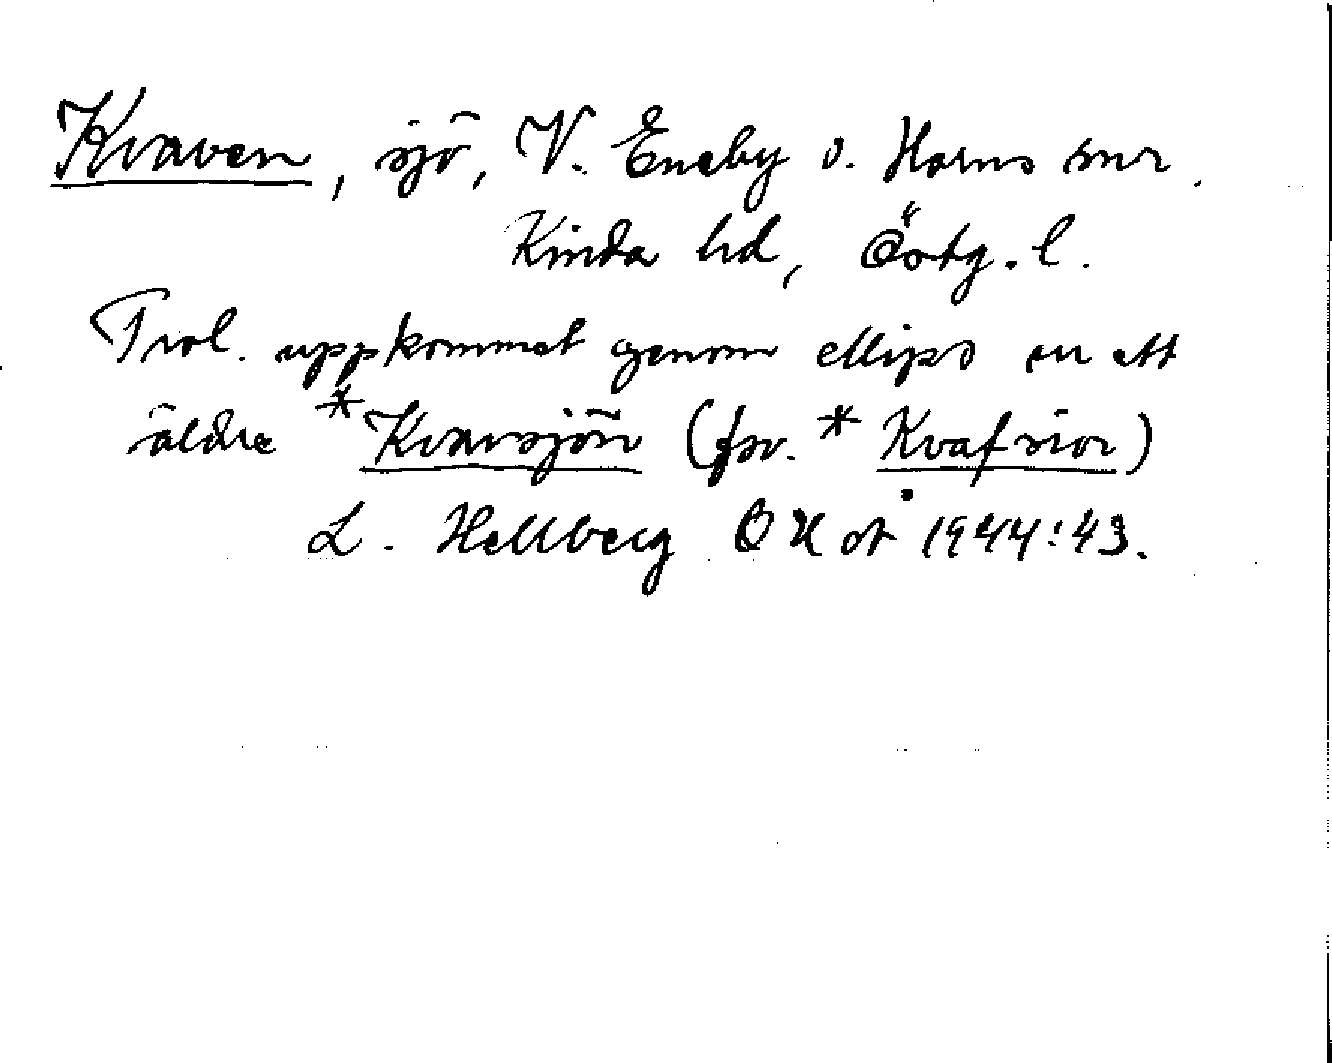 Kvaven, sjö, V. Eneby o. Horns snr.
Kinda hd, Östg. l.
Trol. uppkommet genom ellips ur ett
äldre *Kvavsjön (fsv. *Kvafsior)
L. Hellberg OUÅ 1944:43.